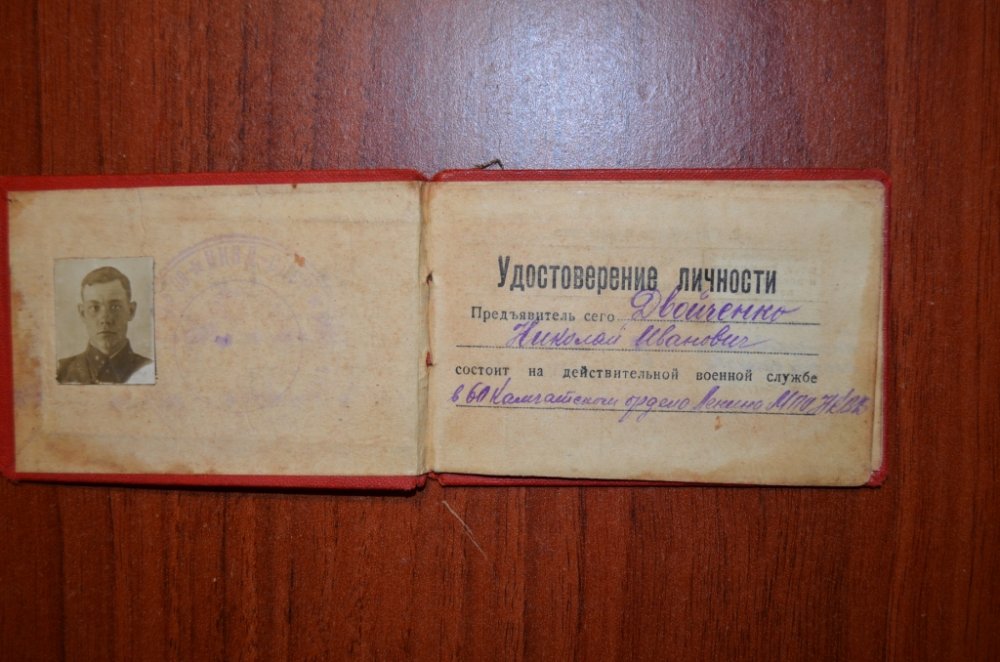 Удостоверение личности
Предъявитель сего Двойченко
Николай Иванович
состоит на действительной военной службе
в 60 Камчатском ордена Ленина МПО НКВД